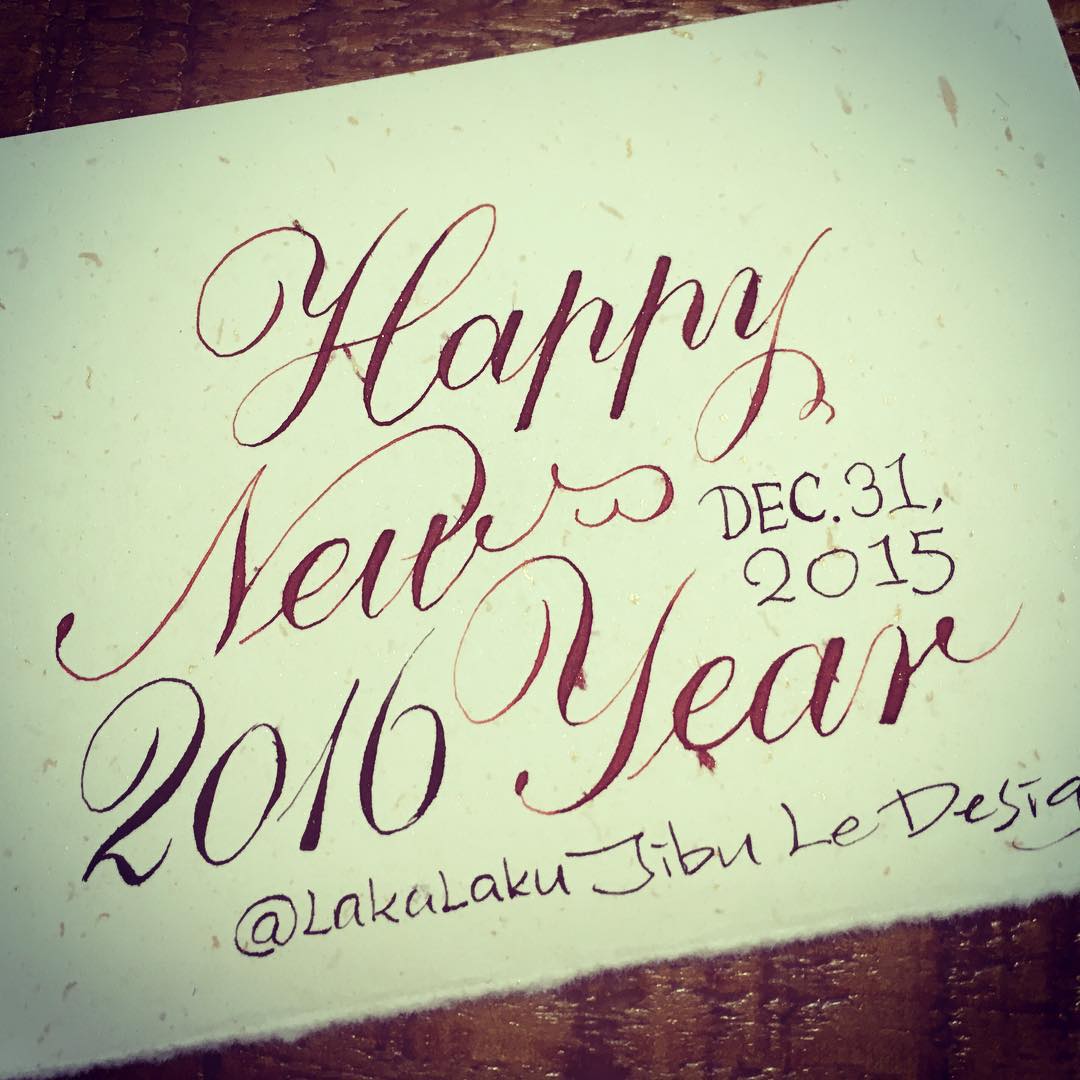 Happy
New
DEC.31,
2015
2016 Year
@LakaLaku Jibu Le Desig